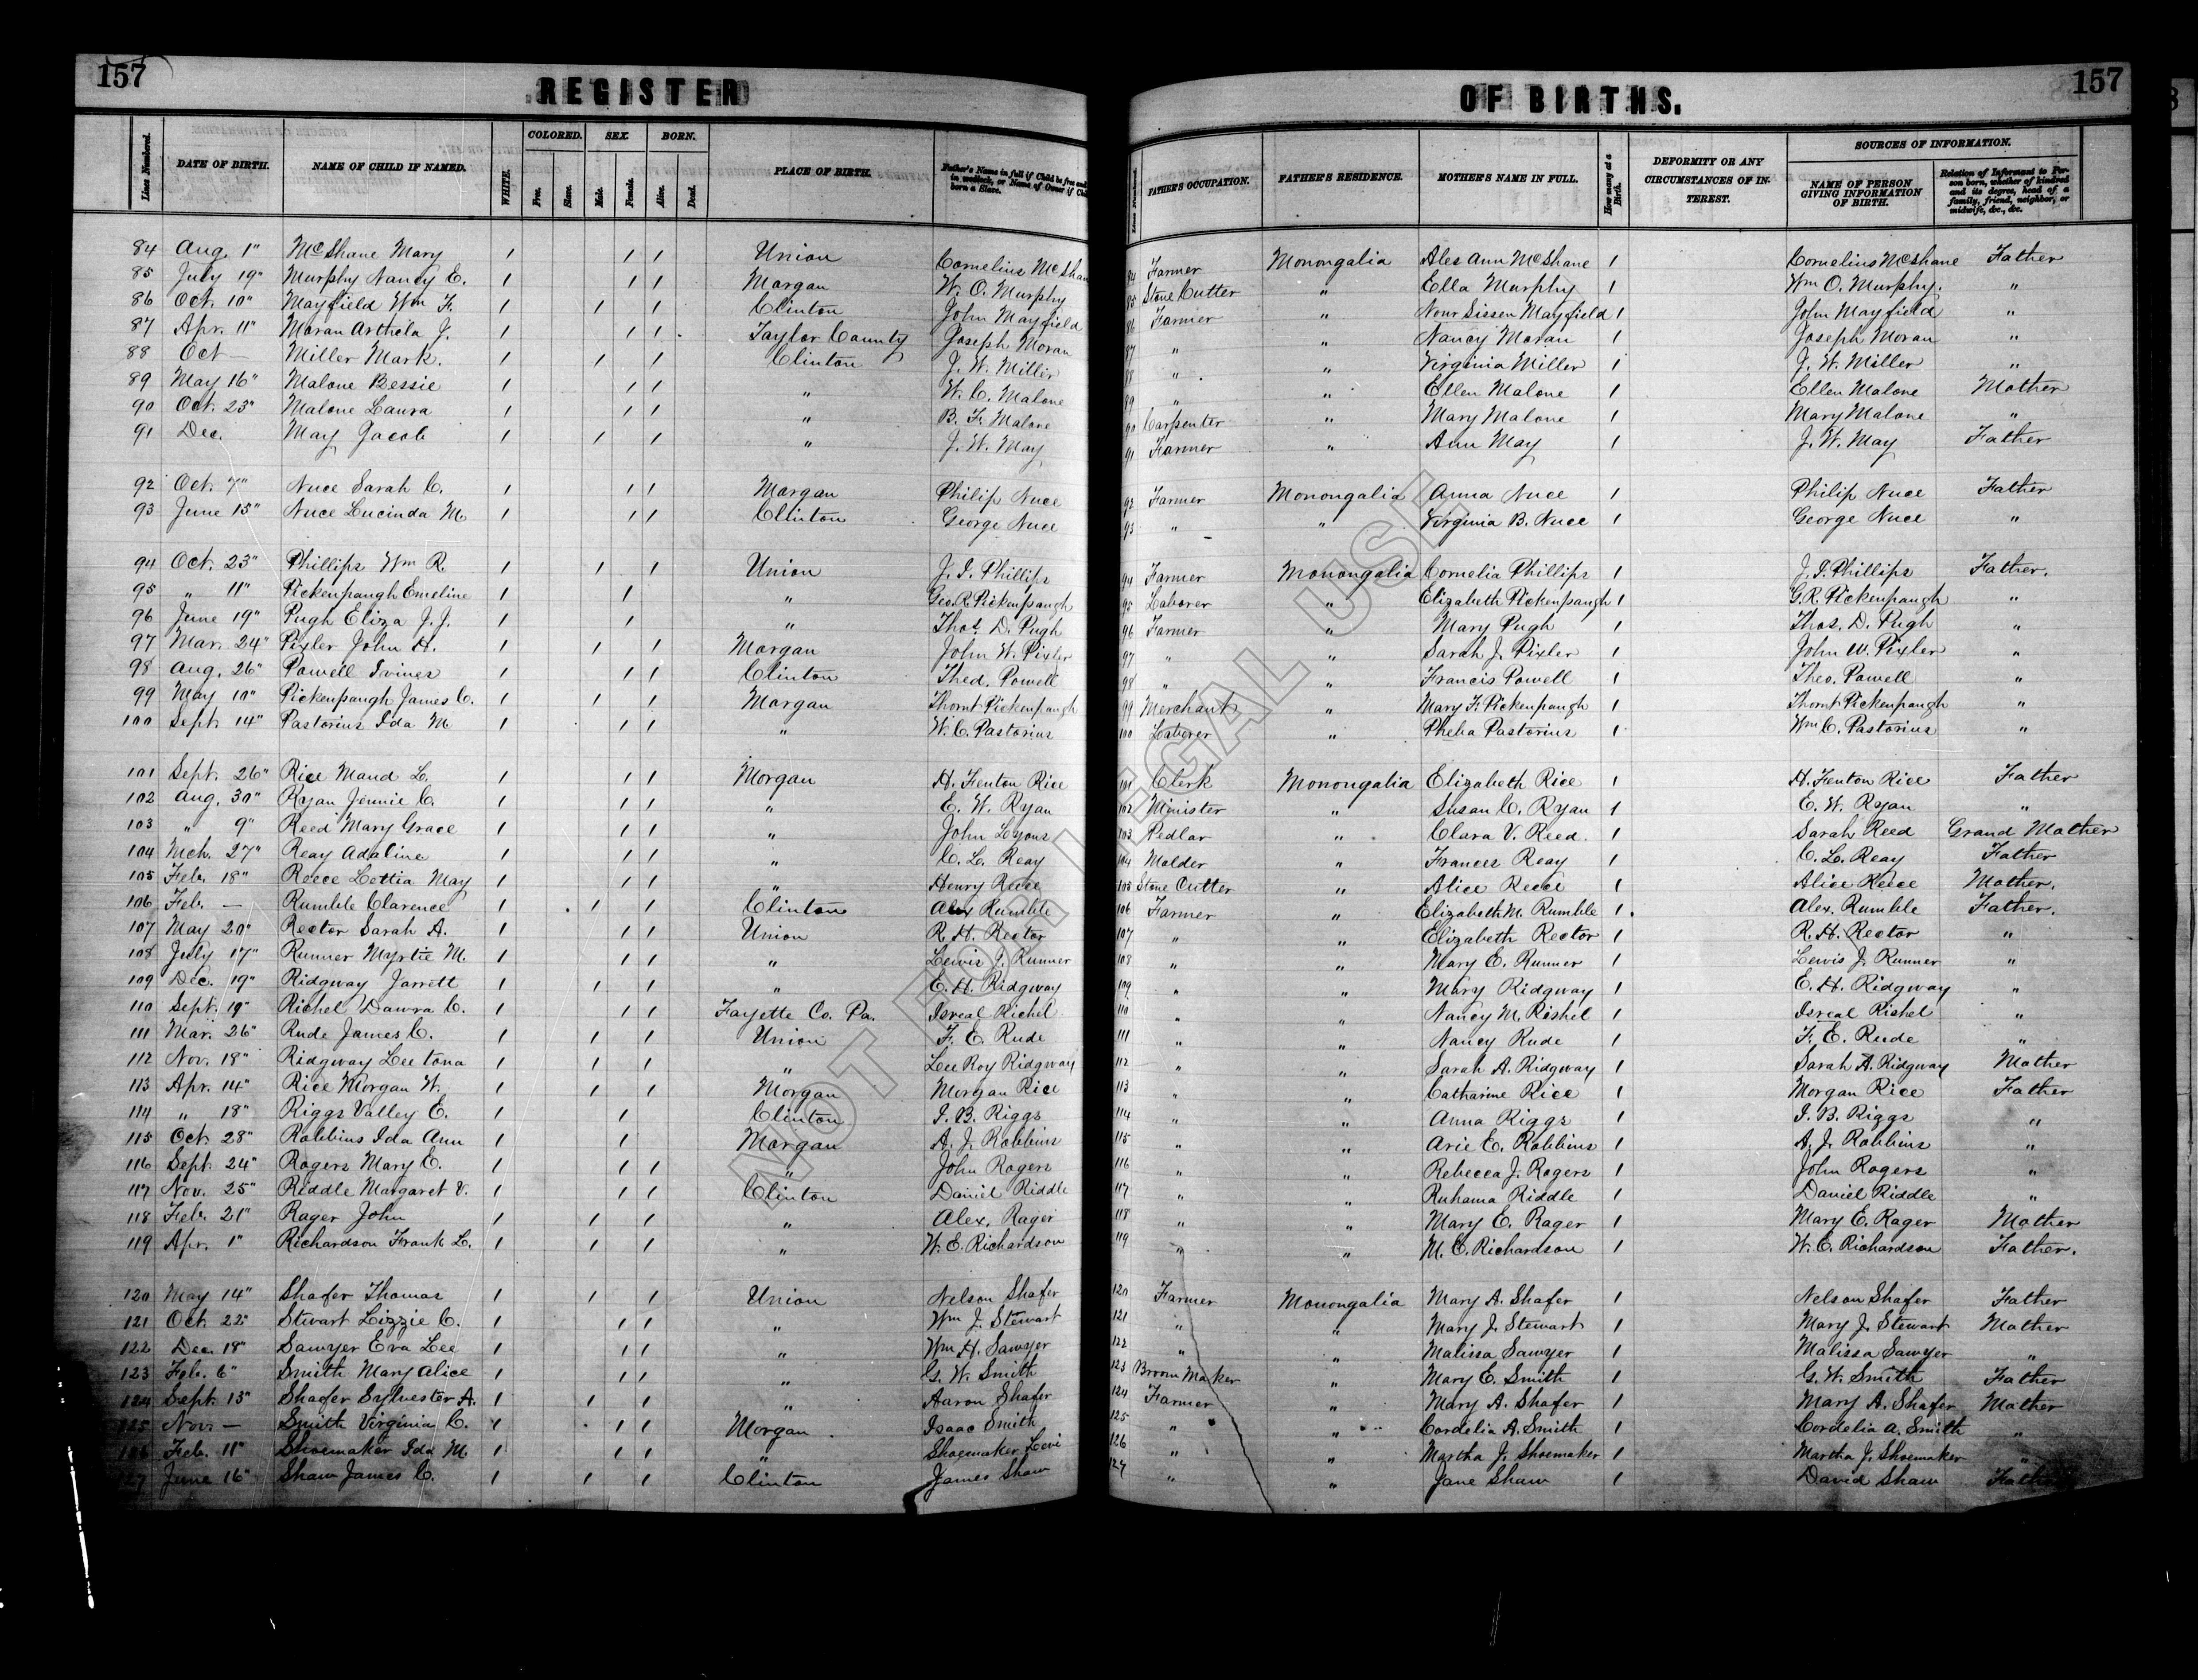 157 REGISTER OF BIRTHS. 157
Lines Numbered. DATE OF BIRTH. NAME OF CHILD IF NAMED. WHITE. COLORED. Free. Slave. SEX. Male. Female. BORN. Alive. Dead. PLACE OF BIRTH. Father's Name in full if Child be free and in wedlock, or Name of Owner if Child born a Slave. Lines Numbered. FATHER'S OCCUPATION. FATHER'S RESIDENCE. MOTHER'S NAME IN FULL. How many at a Birth. DEFORMITY OR ANY CIRCUMSTANCES OF INTEREST. SOURCES OF INFORMATION. NAME OF PERSON GIVING INFORMATION OF BIRTH. Relation of Informant to Person born, whether of kindred and its degree, head of a family, friend, neighbor, or midwife, &c., &c.
84 Aug. 1" McShane Mary 1 1 1 Union Cornelius McShan 84 Farmer Monongalia Ales Ann McShane 1 Cornelius McShane Father
85 July 19" Murphy Nancy E. 1 1 1 Morgan W. O. Murphy 85 Stone Cutter " Ella Murphy 1 Wm O. Murphy. "
86 Oct. 10" Mayfield Wm F. 1 1 1 Clinton John Mayfield 86 Farmer " Mayfield 1 John Mayfield "
87 Apr. 11" Moran Arthela J. 1 1 1 Taylor County Joseph Moran 87 " " Nancy Moran 1 Joseph Moran "
88 Oct — Miller Mark. 1 1 1 Clinton J. W. Miller 88 " " Virginia Miller 1 J. W. Miller "
89 May 16" Malone Bessie 1 1 1 " W. C. Malone 89 " " Ellen Malone 1 Ellen Malone Mother
90 Oct. 23" Malone Laura 1 1 1 " B. F. Malone 90 Carpenter " Mary Malone 1 Mary Malone "
91 Dec. May Jacob 1 1 1 " J. W. May 91 Farmer " Ann May 1 J. W. May Father
92 Oct. 7" Nuce Sarah C. 1 1 1 Morgan Philip Nuce 92 Farmer Monongalia Anna Nuce 1 Philip Nuce Father
93 June 15" Nuce Lucinda M. 1 1 1 Clinton George Nuce 93 " " Virginia B. Nuce 1 George Nuce "
94 Oct. 23" Phillips Wm R. 1 1 1 Union J. I. Phillips 94 Farmer Monongalia Cornelia Phillips 1 J. I. Phillips Father.
95 " 11" Pickenpaugh Emeline 1 1 " Geo. R. Pickenpaugh 95 Laborer " Elizabeth Pickenpaugh 1 G. R. Pickenpaugh "
96 June 19" Pugh Eliza J. J. 1 1 " Thos. D. Pugh 96 Farmer " Mary Pugh 1 Thos. D. Pugh "
97 Mar. 24" Pixler John H. 1 1 1 Morgan John W. Pixler 97 " " Sarah J. Pixler 1 John W. Pixler "
98 Aug. 26" Powell Ivines 1 1 1 Clinton Theo. Powell 98 " " Francis Powell 1 Theo. Powell "
99 May 10" Pickenpaugh James C. 1 1 1 Morgan Thornt Pickenpaugh 99 Merchant " Mary F. Pickenpaugh 1 Thornt Pickenpaugh "
100 Sept. 14" Pastorius Ida M 1 1 1 " W. C. Pastorius 100 Laborer " Pheba Pastorius 1 Wm C. Pastorius "
101 Sept. 26" Rice Maud L. 1 1 1 Morgan H. Fenton Rice 101 Clerk Monongalia Elizabeth Rice 1 H. Fenton Rice Father
102 Aug. 30" Ryan Jennie C. 1 1 1 " E. W. Ryan 102 Minister " Susan C. Ryan 1 E. W. Ryan "
103 " 9" Reed Mary Grace 1 1 1 " John Lyons 103 Pedlar " Clara V. Reed. 1 Sarah Reed Grand Mother
104 Mch. 27" Reay Adaline 1 1 1 " C. L. Reay 104 Molder " Frances Reay 1 C. L. Reay Father
105 Feb. 18" Reece Lettia May 1 1 1 " Henry Reece 105 Stone Cutter " Alice Reece 1 Alice Reece Mother.
106 Feb. — Rumble Clarence 1 1 1 Clinton Alex Rumble 106 Farmer " Elizabeth M. Rumble 1 Alex. Rumble Father.
107 May 20" Rector Sarah A. 1 1 1 Union R. H. Rector 107 " " Elizabeth Rector 1 R. H. Rector "
108 July 17" Runner Myrtie M. 1 1 1 " Lewis J. Runner 108 " " Mary E. Runner 1 Lewis J. Runner "
109 Dec. 19" Ridgway Jarrett 1 1 1 " E. H. Ridgway 109 " " Mary Ridgway 1 E. H. Ridgway "
110 Sept. 19" Richel Dawra C. 1 1 1 Fayette Co. Pa. Isreal Richel 110 " " Nancy M. Rishel 1 Isreal Rishel "
111 Mar. 26" Rude James C. 1 1 1 Union F. E. Rude 111 " " Nancy Rude 1 F. E. Rude "
112 Nov. 18" Ridgway Lee tona 1 1 1 " Lee Roy Ridgway 112 " " Sarah A. Ridgway 1 Sarah A. Ridgway Mother
113 Apr. 14" Rice Morgan W. 1 1 1 Morgan Morgan Rice 113 " " Catharine Rice 1 Morgan Rice Father
114 " 18" Riggs Valley E. 1 1 Clinton I. B. Riggs 114 " " Anna Riggs 1 I. B. Riggs "
115 Oct. 28" Robbins Ida Ann 1 1 Morgan A. J. Robbins 115 " " Arie E. Robbins 1 A. J. Robbins "
116 Sept. 24" Rogers Mary E. 1 1 1 " John Rogers 116 " " Rebecca J. Rogers 1 John Rogers "
117 Nov. 25" Riddle Margaret V. 1 1 1 Clinton Daniel Riddle 117 " " Ruhama Riddle 1 Daniel Riddle "
118 Feb. 21" Rager John 1 1 1 " Alex. Rager 118 " " Mary E. Rager 1 Mary E. Rager Mother
119 Apr. 1" Richardson Frank L. 1 1 1 " W. E. Richardson 119 " " M. E. Richardson 1 W. E. Richardson Father.
120 May 14" Shafer Thomas 1 1 1 Union Nelson Shafer 120 Farmer Monongalia Mary A. Shafer 1 Nelson Shafer Father
121 Oct. 22" Stewart Lizzie C. 1 1 1 " Wm J. Stewart 121 " " Mary J. Stewart 1 Mary J. Stewart Mother
122 Dec. 18" Sawyer Eva Lee 1 1 1 " Wm H. Sawyer 122 " " Malissa Sawyer 1 Malissa Sawyer "
123 Feb. 6" Smith Mary Alice 1 1 1 " G. W. Smith 123 Broom Maker " Mary E. Smith 1 G. W. Smith Father
124 Sept. 13" Shafer Sylvester A. 1 1 1 " Aaron Shafer 124 Farmer " Mary A. Shafer 1 Mary A. Shafer Mother
125 Nov. — Smith Virginia C. 1 1 1 Morgan Isaac Smith 125 " " Cordelia A. Smith 1 Cordelia A. Smith "
126 Feb. 11" Shoemaker Ida M 1 1 1 " Shoemaker Levi 126 " " Martha J. Shoemaker 1 Martha J. Shoemaker "
127 June 16" Shaw James C. 1 1 1 Clinton James Shaw 127 " " Jane Shaw 1 David Shaw Father
NOT FOR LEGAL USE